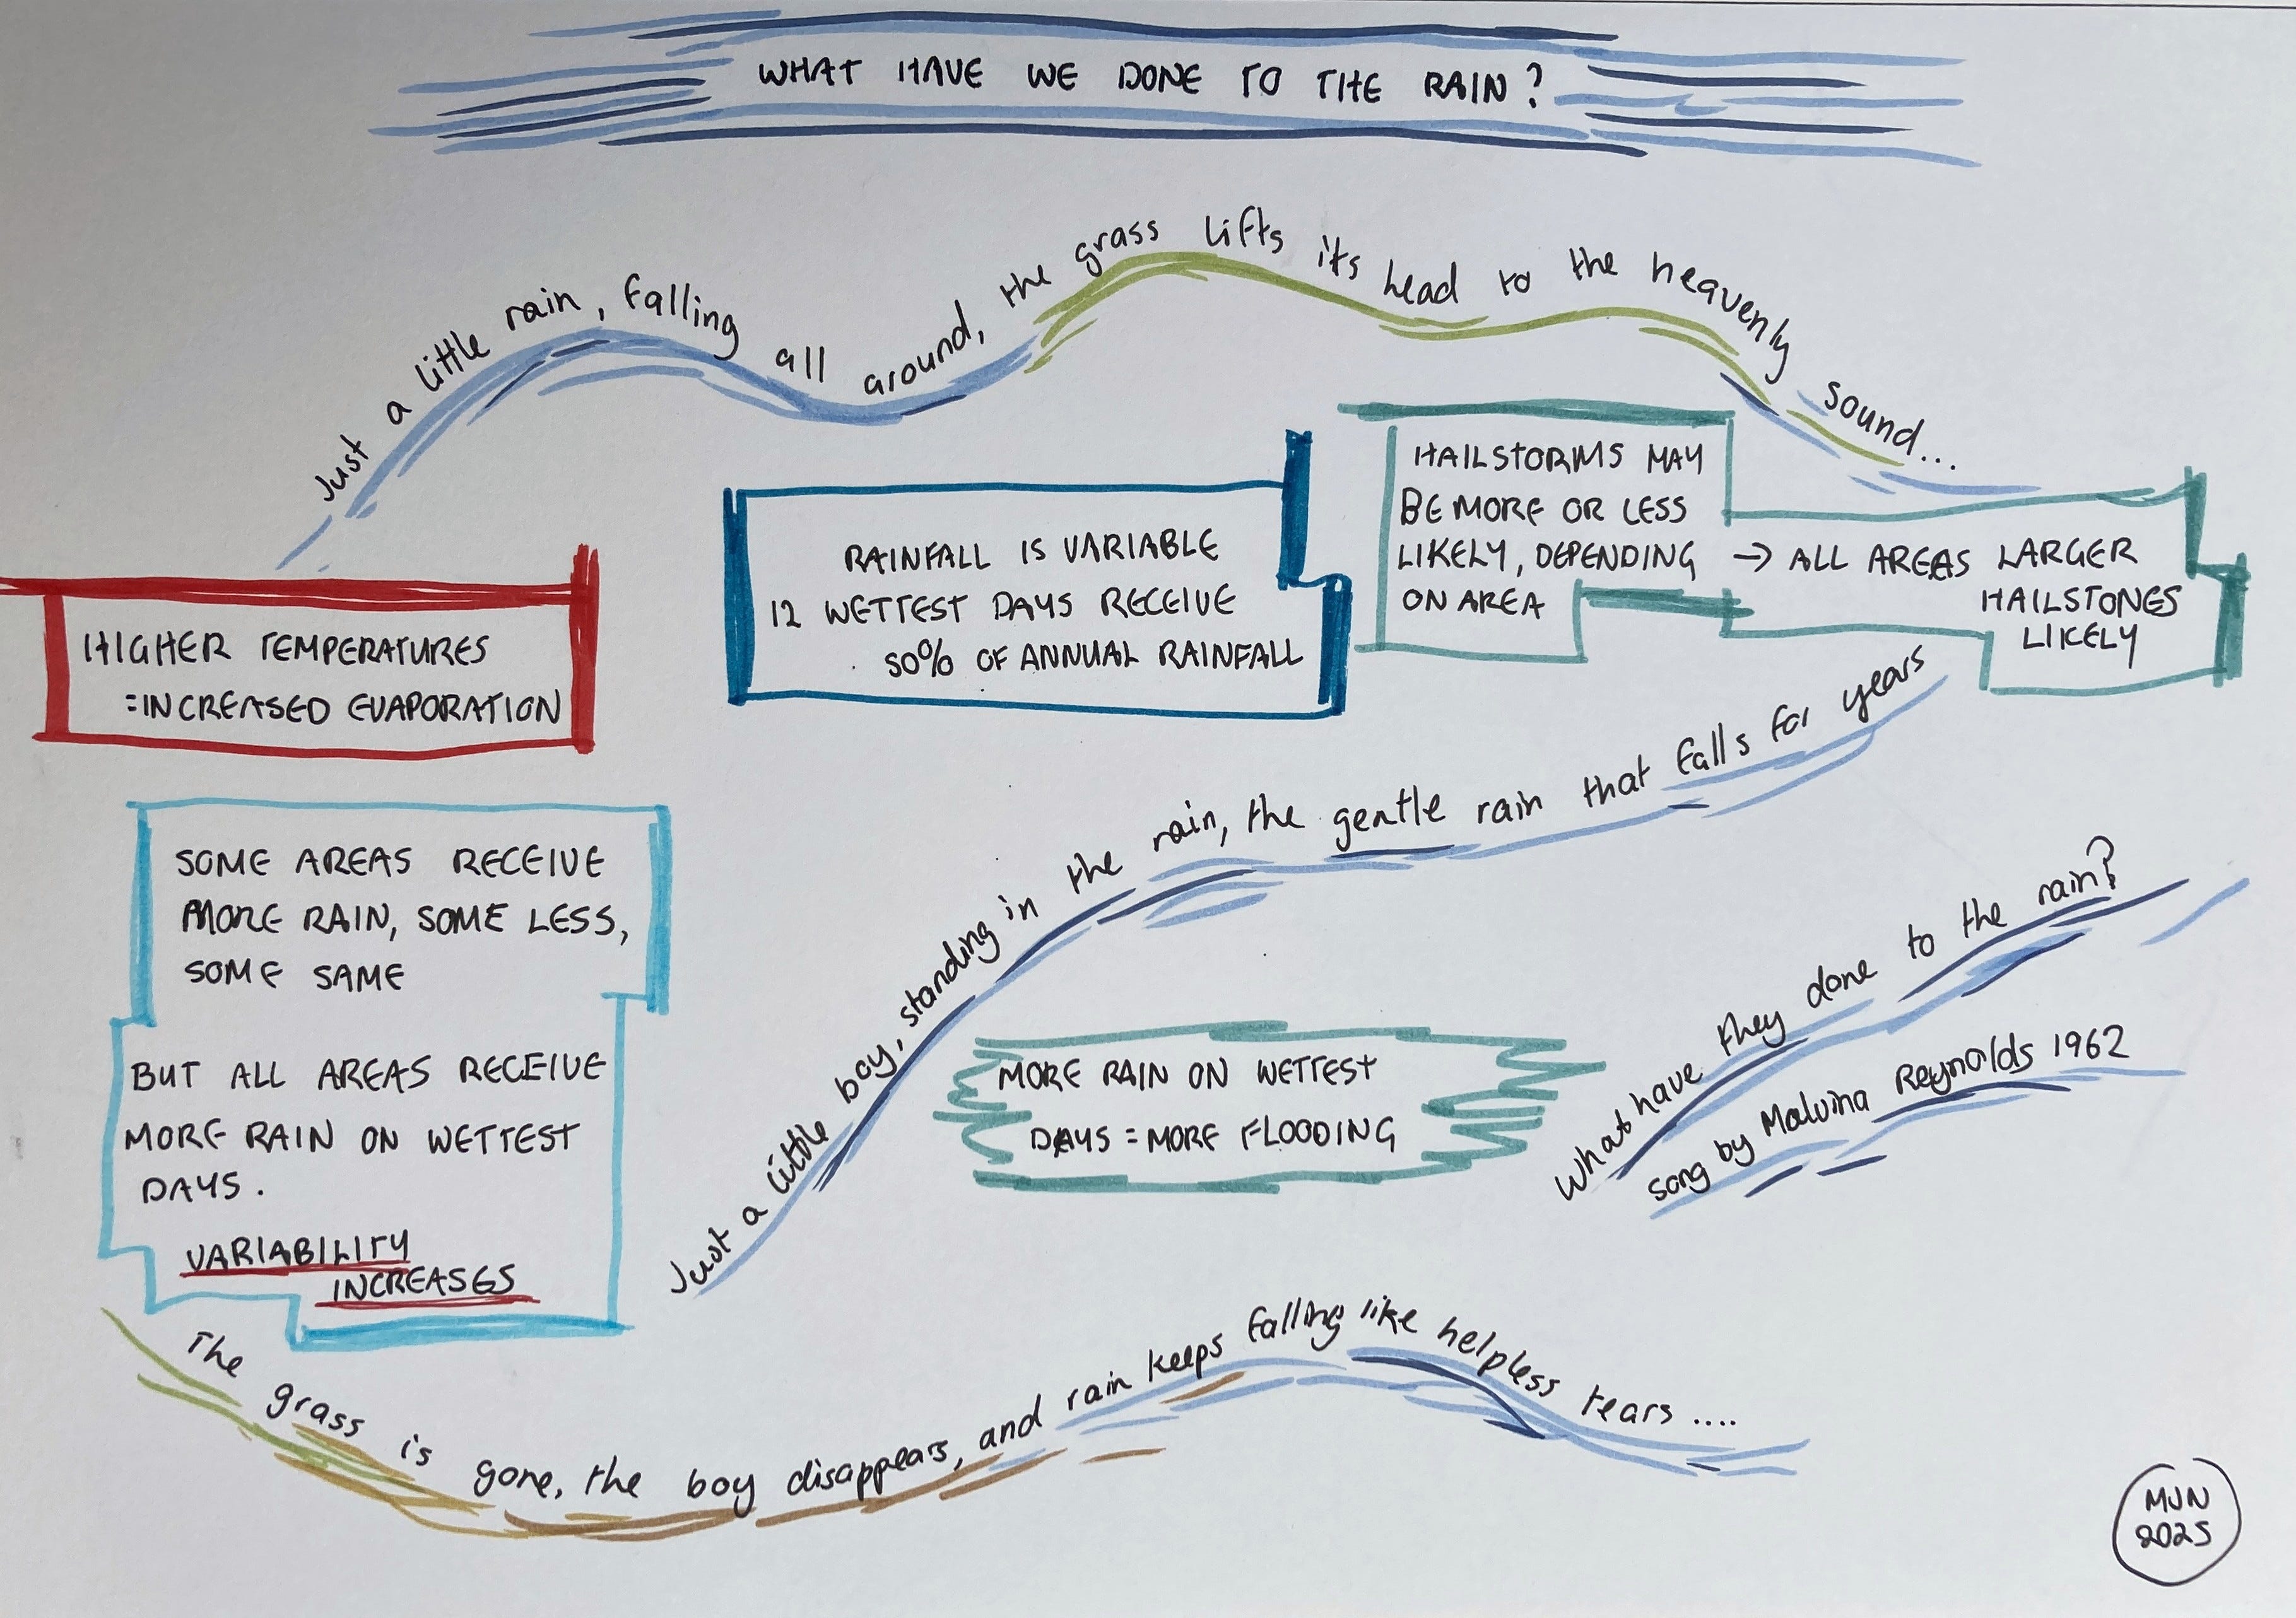 WHAT HAVE WE DONE TO THE RAIN?
Just a little rain, falling all around, the grass lifts its head to the heavenly sound...
HIGHER TEMPERATURES
=INCREASED EVAPORATION
RAINFALL IS VARIABLE
12 WETTEST DAYS RECEIVE
50% OF ANNUAL RAINFALL
HAILSTORMS MAY
BE MORE OR LESS
LIKELY, DEPENDING
ON AREA
→ ALL AREAS LARGER
HAILSTONES
LIKELY
SOME AREAS RECEIVE
MORE RAIN, SOME LESS,
SOME SAME
BUT ALL AREAS RECEIVE
MORE RAIN ON WETTEST
DAYS.
VARIABILITY
INCREASES
Just a little boy, standing in the rain, the gentle rain that falls for years
MORE RAIN ON WETTEST
DAYS = MORE FLOODING
What have they done to the rain?
song by Malvina Reynolds 1962
The grass is gone, the boy disappears, and rain keeps falling like helpless tears....
MJN
2025